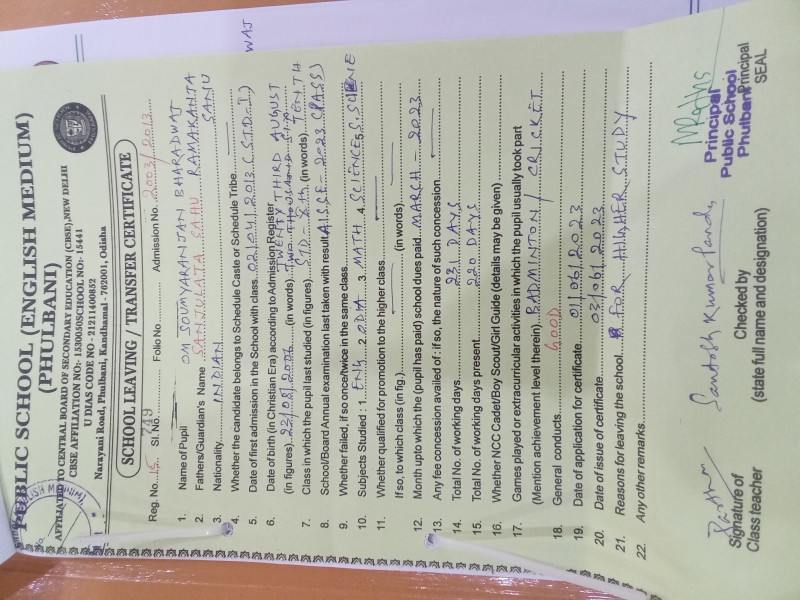 PUBLIC SCHOOL (ENGLISH MEDIUM)
(PHULBANI)
AFFILIATED TO CENTRAL BOARD OF SECONDARY EDUCATION (CBSE), NEW DELHI
CBSE AFFILIATION NO:- 1530050 SCHOOL NO:- 15441
U DIAS CODE NO - 21211400852
Narayani Road, Phulbani, Kandhamal - 762001, Odisha
SCHOOL LEAVING / TRANSFER CERTIFICATE
Reg. No. 15 Sl. No. 749 Folio No. Admission No. 2003/2013
1. Name of Pupil OM SOUMYARANJAN BHARADWAJ
2. Fathers/Guardian's Name SANJULATA SAHU RAMAKANTA SAHU
3. Nationality INDIAN
4. Whether the candidate belongs to Schedule Caste or Schedule Tribe
5. Date of first admission in the School with class. 02/04/2013 (STD. I)
6. Date of birth (in Christian Era) according to Admission Register TWENTY THIRD AUGUST
(in figures) 23/08/2006 (in words) TWO THOUSAND SIX
7. Class in which the pupil last studied (in figures) STD - 10th (in words) TENTH
8. School/Board Annual examination last taken with result AISSE - 2023 (PASS)
9. Whether failed, if so once/twice in the same class
10. Subjects Studied : 1. ENG 2. ODIA 3. MATH 4. SCIENCE 5. S. SCIENE
11. Whether qualified for promotion to the higher class
If so, to which class (in fig.) (in words)
12. Month upto which the (pupil has paid) school dues paid MARCH - 2023
13. Any fee concession availed of : if so, the nature of such concession
14. Total No. of working days 231 DAYS
15. Total No. of working days present 220 DAYS
16. Whether NCC Cadet/Boy Scout/Girl Guide (details may be given)
17. Games played or extracurricular activities in which the pupil usually took part
(Mention achievement level therein) BADMINTON / CRICKET
18. General conducts GOOD
19. Date of application for certificate 01/06/2023
20. Date of issue of certificate 03/06/2023
21. Reasons for leaving the school FOR HIGHER STUDY
22. Any other remarks
Santosh Kumar Panda
Signature of
Class teacher
Checked by
(state full name and designation)
Principal
Public School
Phulbani
Principal
SEAL
WAJ